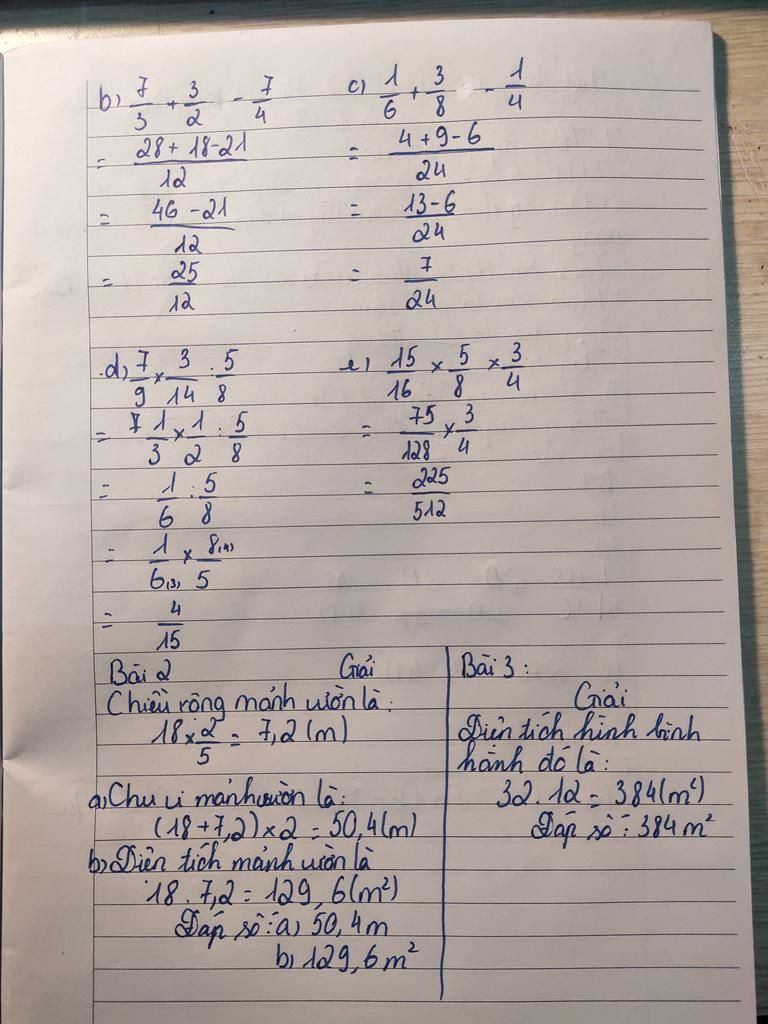 b) 7/3 + 3/2 - 7/4
= (28 + 18 - 21)/12
= (46 - 21)/12
= 25/12
c) 1/6 + 3/8 - 1/4
= (4 + 9 - 6)/24
= (13 - 6)/24
= 7/24
d) 7/9 × 3/14 : 5/8
= 1/3 × 1/2 : 5/8
= 1/6 : 5/8
= 1/6(3) × 8(4)/5
= 4/15
e) 15/16 × 5/8 × 3/4
= 75/128 × 3/4
= 225/512
Bài 2 Giải
Chiều rộng mảnh vườn là:
18 × 2/5 = 7,2 (m)
a) Chu vi mảnh vườn là:
(18 + 7,2) × 2 = 50,4 (m)
b) Diện tích mảnh vườn là
18 . 7,2 = 129,6 (m²)
Đáp số: a) 50,4 m
b) 129,6 m²
Bài 3:
Giải
Diện tích hình bình
hành đó là:
32 . 12 = 384 (m²)
Đáp số: 384 m²